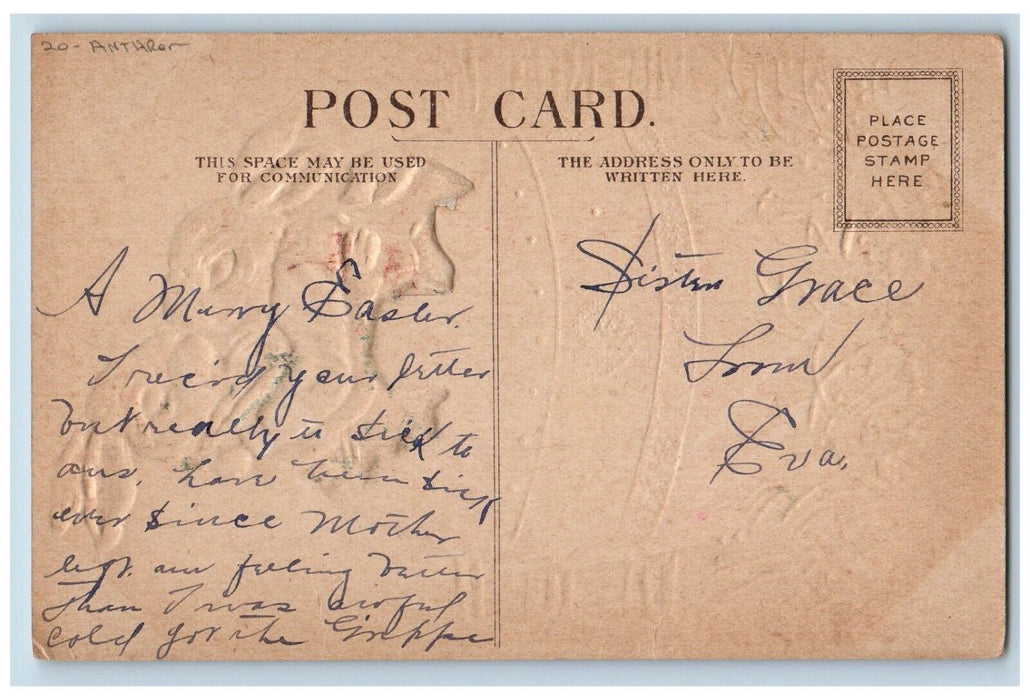 20- ANTHRO
POST CARD.
THIS SPACE MAY BE USED
FOR COMMUNICATION
THE ADDRESS ONLY TO BE
WRITTEN HERE.
PLACE
POSTAGE
STAMP
HERE
A Merry Easter.
I recivd your letter
but really to sick to
ans. have been sick
ever since Mother
left. am feeling better
than I was awful
cold got the Grippe
Sister Grace
From
Eva.